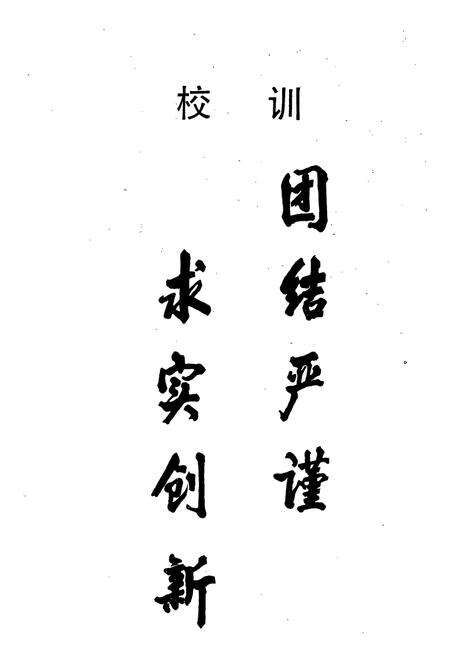 校 训
团结严谨
求实创新